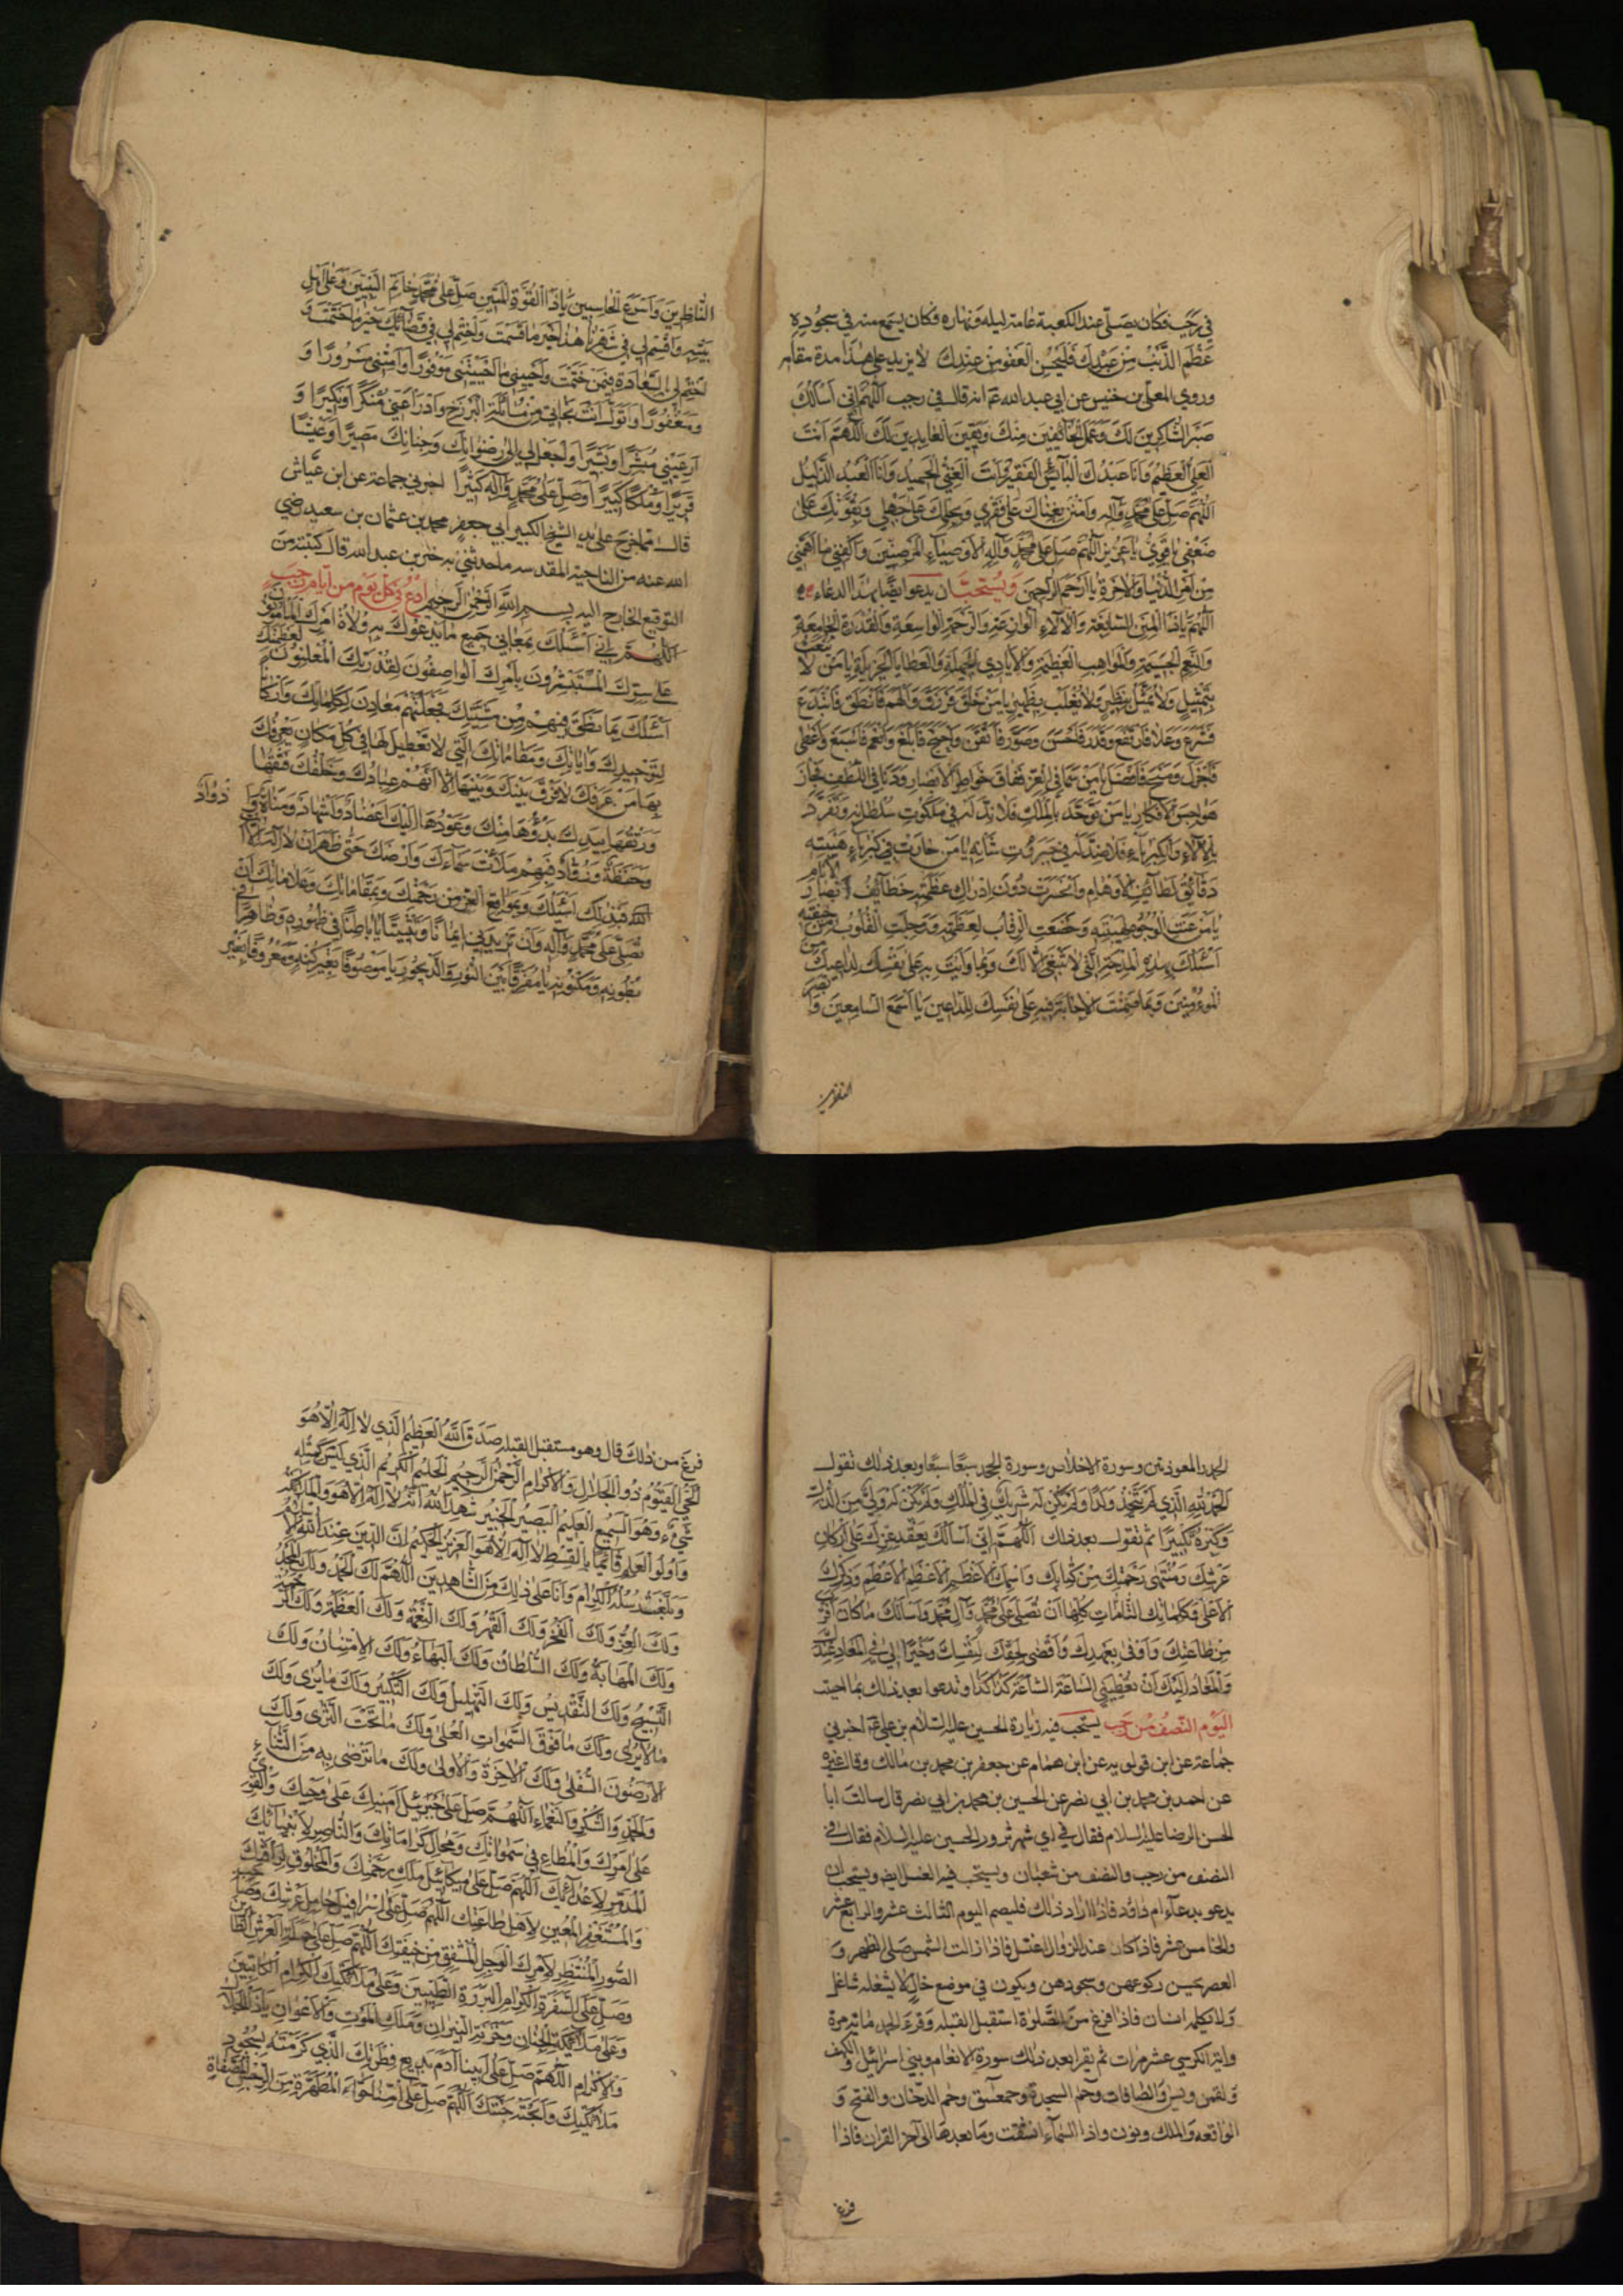 في رجب فكان يصلّي عند الكعبة عامة ليله ونهاره فكان يسمع منه في سجوده
عَظُمَ الذَّنْبُ مِنْ عَبْدِكَ فَلْيَحْسُنِ الْعَفْوُ مِنْ عِنْدِكَ لا يزيد على هذا مدة مقامه
وروي المعلى بن خنيس عن ابي عبد الله ع انه قال في رجب اَللّٰهُمَّ اِنّي اَسْاَلُكَ
صَبْرَ الشّٰاكِرينَ لَكَ وَعَمَلَ الْخٰائِفينَ مِنْكَ وَيَقينَ الْعٰابِدينَ لَكَ اَللّٰهُمَّ اَنْتَ
الْعَلِيُّ الْعَظيمُ وَاَنَا عَبْدُكَ الْبٰائِسُ الْفَقيرُ وَاَنْتَ الْغَنِيُّ الْحَميدُ وَاَنَا الْعَبْدُ الذَّليلُ
اَللّٰهُمَّ صَلِّ عَلى مُحَمَّدٍ وَآلِهِ وَامْنُنْ بِغِنٰاكَ عَلى فَقْري وَبِحِلْمِكَ عَلى جَهْلي وَبِقُوَّتِكَ عَلى
ضَعْفي يٰا قَوِيُّ يٰا عَزيزُ اَللّٰهُمَّ صَلِّ عَلى مُحَمَّدٍ وَآلِهِ الْاَوْصِيٰاءِ الْمَرْضِيّينَ وَاكْفِني مٰا اَهَمَّني
مِنْ اَمْرِ الدُّنْيٰا وَالْاٰخِرَةِ يٰا اَرْحَمَ الرّٰاحِمينَ وَيُسْتَحَبُّ ان يدعوا ايضًا بهذا الدعاء
اَللّٰهُمَّ يٰا ذَا الْمِنَنِ السّٰابِغَةِ وَالْاٰلٰاءِ الْوٰازِعَةِ وَالرَّحْمَةِ الْوٰاسِعَةِ وَالْقُدْرَةِ الْجٰامِعَةِ
وَالنِّعَمِ الْجَسيمَةِ وَالْمَوٰاهِبِ الْعَظيمَةِ وَالْاَيٰادِي الْجَميلَةِ وَالْعَطٰايَا الْجَزيلَةِ يٰا مَنْ لٰا يُنْعَتُ
بِتَمْثيلٍ وَلٰا يُمَثَّلُ بِنَظيرٍ وَلٰا يُغْلَبُ بِظَهيرٍ يٰا مَنْ خَلَقَ فَرَزَقَ وَاَلْهَمَ فَاَنْطَقَ فَابْتَدَعَ
فَشَرَعَ وَعَلٰا فَارْتَفَعَ وَقَدَّرَ فَاَحْسَنَ وَصَوَّرَ فَاَتْقَنَ وَاحْتَجَّ فَاَبْلَغَ وَاَنْعَمَ فَاَسْبَغَ وَاَعْطى
فَاَجْزَلَ وَمَنَحَ فَاَفْضَلَ يٰا مَنْ سَمٰا فِي الْعِزِّ فَفٰاقَ خَوٰاطِرَ الْاَبْصٰارِ وَدَنٰا فِي اللُّطْفِ فَجٰازَ
هَوٰاجِسَ الْاَفْكٰارِ يٰا مَنْ تَوَحَّدَ بِالْمُلْكِ فَلٰا نِدَّ لَهُ في مَلَكُوتِ سُلْطٰانِهِ وَتَفَرَّدَ
بِالْاٰلٰاءِ وَالْكِبْرِيٰاءِ فَلٰا ضِدَّ لَهُ في جَبَرُوتِ شَأْنِهِ يٰا مَنْ حٰارَتْ في كِبْرِيٰاءِ هَيْبَتِهِ
دَقٰائِقُ لَطٰائِفِ الْاَوْهٰامِ وَانْحَسَرَتْ دُونَ اِدْرٰاكِ عَظَمَتِهِ خَطٰائِفُ اَبْصٰارِ الْاَنٰامِ
يٰا مَنْ عَنَتِ الْوُجُوهُ لِهَيْبَتِهِ وَخَضَعَتِ الرِّقٰابُ لِعَظَمَتِهِ وَوَجِلَتِ الْقُلُوبُ مِنْ خيفَتِهِ
اَسْئَلُكَ بِهٰذِهِ الْمِدْحَةِ الَّتي لٰا تَنْبَغي اِلّٰا لَكَ وَبِمٰا وَاَيْتَ بِهِ عَلى نَفْسِكَ لِدٰاعيكَ مِنَ
الْمُؤْمِنينَ وَبِمٰا ضَمِنْتَ الْاِجٰابَةَ فيهِ عَلى نَفْسِكَ لِلدّٰاعينَ يٰا اَسْمَعَ السّٰامِعينَ وَاَبْصَرَ
الناظرين
النّٰاظِرينَ وَاَسْرَعَ الْحٰاسِبينَ يٰا ذَا الْقُوَّةِ الْمَتينَ صَلِّ عَلى مُحَمَّدٍ خٰاتَمِ النَّبِيّينَ وَعَلى اَهْلِ
بَيْتِهِ وَاقْسِمْ لي في شَهْرِنٰا هٰذٰا خَيْرَ مٰا قَسَمْتَ وَاخْتِمْ لي في قَضٰائِكَ خَيْرَ مٰا حَتَمْتَ وَ
اخْتِمْ لي بِالسَّعٰادَةِ فيمَنْ خَتَمْتَ وَاَحْيِني مٰا اَحْيَيْتَني مَوْفُورًا وَاَمِتْني مَسْرُورًا وَ
وَمَغْفُورًا وَتَوَلَّ اَنْتَ نَجٰاتي مِنْ مُسٰائَلَةِ الْبَرْزَخِ وَادْرَأْ عَنّي مُنْكَرًا وَنَكيرًا وَ
اَرِ عَيْني مُبَشِّرًا وَبَشيرًا وَاجْعَلْ لي اِلى رِضْوٰانِكَ وَجِنٰانِكَ مَصيرًا وَعَيْشًا
قَريرًا وَمُلْكًا كَبيرًا وَصَلِّ عَلى مُحَمَّدٍ وَآلِهِ كَثيرًا اخبرني جماعة عن ابن عيّاش
قال مما خرج على يد الشيخ الكبير ابي جعفر محمد بن عثمان بن سعيد رضي
الله عنه من الناحية المقدسه ما حدثني به خير بن عبد الله قال كتبته من
التوقيع الخارج اليه بسم الله الرحمن الرحيم اُدْعُ في كُلِّ يَوْمٍ من اَيّام رَجَبٍ
اَللّٰهُمَّ اِنّي اَسْئَلُكَ بِمَعٰاني جَميعِ مٰا يَدْعُوكَ بِهِ وُلٰاةُ اَمْرِكَ الْمَأْمُونُونَ
عَلى سِرِّكَ الْمُسْتَبْشِرُونَ بِاَمْرِكَ الْوٰاصِفُونَ لِقُدْرَتِكَ الْمُعْلِنُونَ لِعَظَمَتِكَ
اَسْئَلُكَ بِمٰا نَطَقَ فيهِمْ مِنْ مَشِيَّتِكَ فَجَعَلْتَهُمْ مَعٰادِنَ لِكَلِمٰاتِكَ وَاَرْكٰانًا
لِتَوْحيدِكَ وَاٰيٰاتِكَ وَمَقٰامٰاتِكَ الَّتي لٰا تَعْطيلَ لَهٰا في كُلِّ مَكٰانٍ يَعْرِفُكَ
بِهٰا مَنْ عَرَفَكَ لٰا فَرْقَ بَيْنَكَ وَبَيْنَهٰا اِلّٰا اَنَّهُمْ عِبٰادُكَ وَخَلْقُكَ فَتْقُهٰا
وَرَتْقُهٰا بِيَدِكَ بَدْؤُهٰا مِنْكَ وَعَوْدُهٰا اِلَيْكَ اَعْضٰادٌ وَاَشْهٰادٌ وَمُنٰاةٌ وَ اَذْوٰادٌ
وَحَفَظَةٌ وَرُوّٰادٌ فَبِهِمْ مَلَأْتَ سَمٰاءَكَ وَاَرْضَكَ حَتّى ظَهَرَ اَنْ لٰا اِلٰهَ اِلّٰا
اَنْتَ فَبِذٰلِكَ اَسْئَلُكَ وَبِمَوٰاقِعِ الْعِزِّ مِنْ رَحْمَتِكَ وَبِمَقٰامٰاتِكَ وَعَلٰامٰاتِكَ اَنْ
تُصَلِّيَ عَلى مُحَمَّدٍ وَآلِهِ وَاَنْ تَزيدَني ايمٰانًا وَتَثْبيتًا يٰا بٰاطِنًا في ظُهُورِهِ وَظٰاهِرًا في
بُطُونِهِ وَمَكْنُونِهِ يٰا مُفَرِّقًا بَيْنَ النُّورِ وَالدَّيْجُورِ يٰا مَوْصُوفًا بِغَيْرِ كُنْهٍ وَمَعْرُوفًا بِغَيْرِ
الحمد والمعوذتين وسورة الاخلاص وسورة الجحد سبعًا سبعًا وبعد ذلك تقول
اَلْحَمْدُ لِلّٰهِ الَّذي لَمْ يَتَّخِذْ وَلَدًا وَلَمْ يَكُنْ لَهُ شَريكٌ فِي الْمُلْكِ وَلَمْ يَكُنْ لَهُ وَلِيٌّ مِنَ الذُّلِّ
وَكَبِّرْهُ تَكْبيرًا ثم تقول بعد ذلك اَللّٰهُمَّ اِنّي اَسْاَلُكَ بِعَقْدِ عِزِّكَ عَلى اَرْكٰانِ
عَرْشِكَ وَمُنْتَهى رَحْمَتِكَ مِنْ كِتٰابِكَ وَاسْمِكَ الْاَعْظَمِ الْاَعْظَمِ الْاَعْظَمِ وَذِكْرِكَ
الْاَعْلى وَكَلِمٰاتِكَ التّٰامّٰاتِ كُلِّهٰا اَنْ تُصَلِّيَ عَلى مُحَمَّدٍ وَآلِ مُحَمَّدٍ وَاَسْاَلُكَ مٰا كٰانَ اَوْفى
مِنْ طٰاعَتِكَ وَاَوْفى بِعَهْدِكَ وَاَقْضى لِحَقِّكَ لِنَفْسِكَ وَخَيْرًا لي فِي الْمَعٰادِ عِنْدَكَ
وَالْمَعٰادِ اِلَيْكَ اَنْ تُعْطِيَنِي السّٰاعَةَ السّٰاعَةَ كَذٰا كَذٰا وتدعوا بعد ذلك بما احببت
اليَوْمَ النّصْفُ مِنْ رَجَب يستحب فيه زيارة الحسين عليه السلام بن علي ع اخبرني
جماعة عن ابن قولويه عن ابن همام عن جعفر بن محمد بن مالك وقال غيره
عن احمد بن محمد بن ابي نصر عن الحسين بن محمد بن ابي نصر قال سالت ابا
الحسن الرضا عليه السلام فقال في اي شهر نزور الحسين عليه السلام فقال في
النصف من رجب والنصف من شعبان ويستحب فيه الغسل ايضا ويستحب ان
يدعو بدعاء ام داود فاذا اراد ذلك فليصم اليوم الثالث عشر والرابع عشر
والخامس عشر فاذا كان عند الزوال اغتسل فاذا زالت الشمس صلى الظهر وَ
العصر يحسن ركوعهن وسجودهن ويكون في موضع خالٍ لا يشغله شاغل
وَلا يكلمه انسان فاذا فرغ من الصّلوة استقبل القبلة وقرء الحمد مائة مرة
واية الكرسي عشر مرات ثم يقرا بعد ذلك سورة الانعام وبني اسرائيل والكهف
ولقمن ويس والصافات وحم السجدة وحمعسق وحم الدخان والفتح وَ
الواقعه والملك ونون واذا السماء انشقت وما بعدها الى آخر القران فاذا
فرغ
فرغ من ذلك قال وهو مستقبل القبلة صَدَقَ اللّٰهُ الْعَظيمُ الَّذي لٰا اِلٰهَ اِلّٰا هُوَ
الْحَيُّ الْقَيُّومُ ذُو الْجَلٰالِ وَالْاِكْرٰامِ الرَّحْمٰنُ الرَّحيمُ الْحَليمُ الْكَريمُ الَّذي لَيْسَ كَمِثْلِهِ
شَيْءٌ وَهُوَ السَّميعُ الْعَليمُ الْبَصيرُ الْخَبيرُ شَهِدَ اللّٰهُ اَنَّهُ لٰا اِلٰهَ اِلّٰا هُوَ وَالْمَلٰائِكَةُ
وَاُولُوا الْعِلْمِ قٰائِمًا بِالْقِسْطِ لٰا اِلٰهَ اِلّٰا هُوَ الْعَزيزُ الْحَكيمُ اِنَّ الدّينَ عِنْدَ اللّٰهِ الْاِسْلٰامُ
وَبَلَّغَتْ رُسُلُهُ الْكِرٰامُ وَاَنَا عَلى ذٰلِكَ مِنَ الشّٰاهِدينَ اَللّٰهُمَّ لَكَ الْحَمْدُ وَلَكَ الْمَجْدُ
وَلَكَ الْعِزُّ وَلَكَ الْفَخْرُ وَلَكَ الْقَهْرُ وَلَكَ النِّعْمَةُ وَلَكَ الْعَظَمَةُ وَلَكَ الرَّحْمَةُ
وَلَكَ الْمَهٰابَةُ وَلَكَ السُّلْطٰانُ وَلَكَ الْبَهٰاءُ وَلَكَ الْاِمْتِنٰانُ وَلَكَ
التَّسْبيحُ وَلَكَ التَّقْديسُ وَلَكَ التَّهْليلُ وَلَكَ التَّكْبيرُ وَلَكَ مٰا يُرى وَلَكَ
مٰا لٰا يُرى وَلَكَ مٰا فَوْقَ السَّمٰوٰاتِ الْعُلى وَلَكَ مٰا تَحْتَ الثَّرى وَلَكَ
الْاَرَضُونَ السُّفْلى وَلَكَ الْاٰخِرَةُ وَالْاُولى وَلَكَ مٰا تَرْضى بِهِ مِنَ الثَّنٰاءِ
وَالْحَمْدِ وَالشُّكْرِ وَالنَّعْمٰاءِ اَللّٰهُمَّ صَلِّ عَلى جَبْرَئيلَ اَمينِكَ عَلى وَحْيِكَ وَالْقَوِيِّ
عَلى اَمْرِكَ وَالْمُطٰاعِ في سَمٰوٰاتِكَ وَمَحٰالِّ كَرٰامٰاتِكَ وَالنّٰاصِرِ لِاَنْبِيٰائِكَ
الْمُدَمِّرِ لِاَعْدٰائِكَ اَللّٰهُمَّ صَلِّ عَلى ميكٰائيلَ مَلَكِ رَحْمَتِكَ وَالْمَخْلُوقِ لِرَأْفَتِكَ
وَالْمُسْتَغْفِرِ الْمُعينِ لِاَهْلِ طٰاعَتِكَ اَللّٰهُمَّ صَلِّ عَلى اِسْرٰافيلَ حٰامِلِ عَرْشِكَ وَصٰاحِبِ
الصُّورِ الْمُنْتَظِرِ لِاَمْرِكَ الْوَجِلِ الْمُشْفِقِ مِنْ خيفَتِكَ اَللّٰهُمَّ صَلِّ عَلى حَمَلَةِ الْعَرْشِ الطّٰاهِرينَ
وَصَلِّ عَلَى السَّفَرَةِ الْكِرٰامِ الْبَرَرَةِ الطَّيِّبينَ وَعَلى مَلٰائِكَتِكَ الْكِرٰامِ الْكٰاتِبينَ
وَعَلى مَلٰائِكَةِ الْجِنٰانِ وَخَزَنَةِ النّيرٰانِ وَمَلَكِ الْمَوْتِ وَالْاَعْوٰانِ يٰا ذَا الْجَلٰالِ
وَالْاِكْرٰامِ اَللّٰهُمَّ صَلِّ عَلى اَبينٰا اٰدَمَ بَديعِ فِطْرَتِكَ الَّذي كَرَّمْتَهُ بِسُجُودِ
مَلٰائِكَتِكَ وَاَبَحْتَهُ جَنَّتَكَ اَللّٰهُمَّ صَلِّ عَلى اُمِّنٰا حَوّٰاءَ الْمُطَهَّرَةِ مِنَ الرِّجْسِ الْمُصَفّٰاةِ